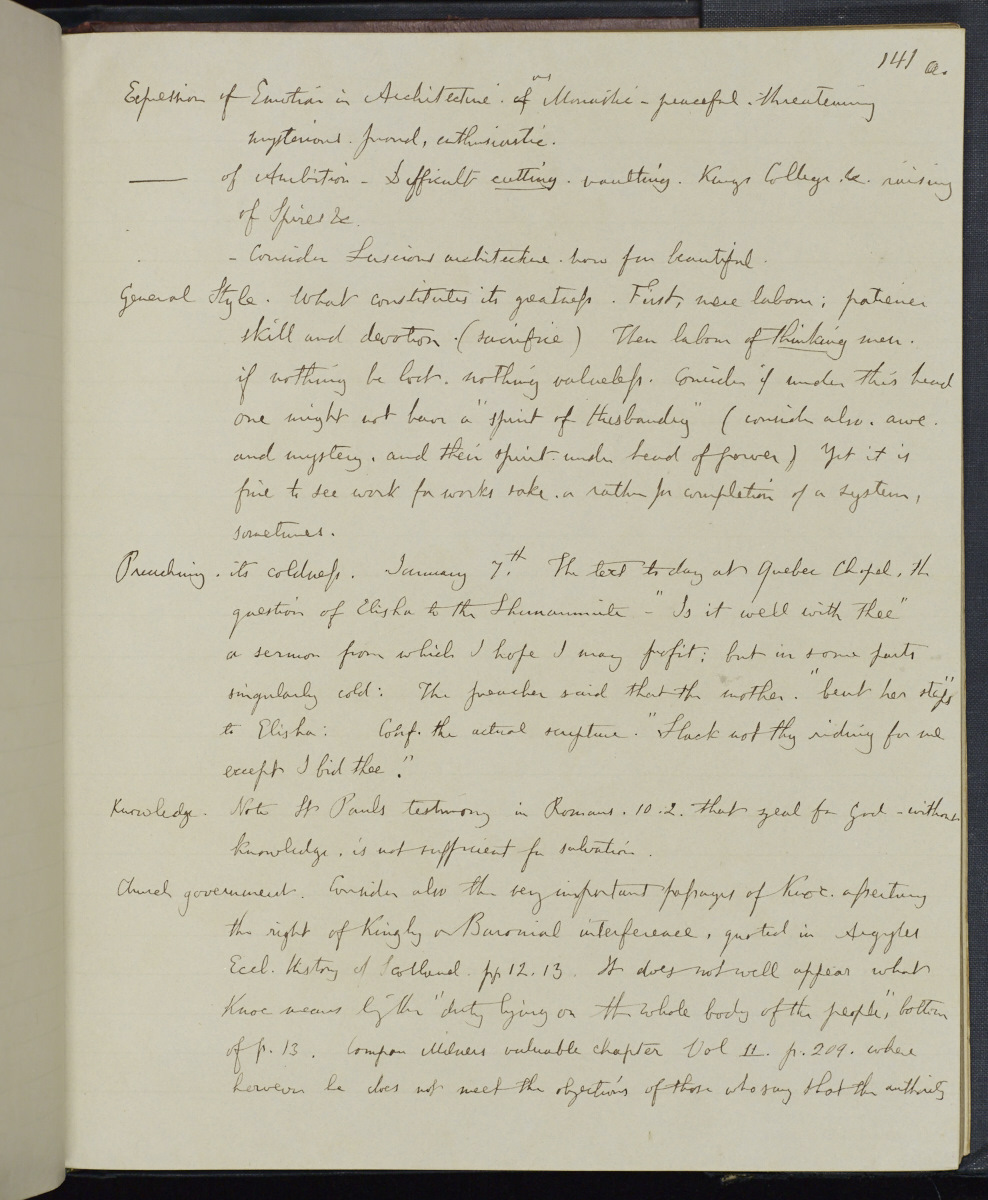 141 a.
Expression of Emotion in Architecture. of Monastic - peaceful. threatening
mysterious. proud, enthusiastic.
—— of Ambition - Difficult cutting. vaulting. Kings College &c. raising
of Spires &c.
- Consider Luscious architecture. how far beautiful.
General Style. What constitutes its greatness. First, mere labour; patience
skill and devotion. (sacrifice) Then labour of thinking men.
if nothing be lost. nothing valueless. Consider if under this head
one might not have a "spirit of Husbandry" (consider also. awe.
and mystery. and their spirit. under head of power) Yet it is
fine to see work for works sake. or rather for completion of a system,
sometimes.
Preaching. its coldness. January 7th. The text today at Quebec Chapel, the
question of Elisha to the Shunammite - "Is it well with thee"
a sermon from which I hope I may profit; but in some parts
singularly cold: The preacher said that the mother. "bent her steps"
to Elisha: Conf. the actual scripture. "Slack not thy riding for me
except I bid thee."
Knowledge. Note St Pauls testimony in Romans. 10.2. that zeal for God - without
knowledge. is not sufficient for salvation.
Church government. Consider also the very important passages of Knox. asserting
the right of Kingly or Baronial interference, quoted in Argyles
Eccl. History of Scotland. pp 12. 13. It does not well appear what
Knox means by the "duty lying on the whole body of the people", bottom
of p. 13. Compare Milners valuable chapter Vol II. p. 209. where
however he does not meet the objections of those who say that the authority